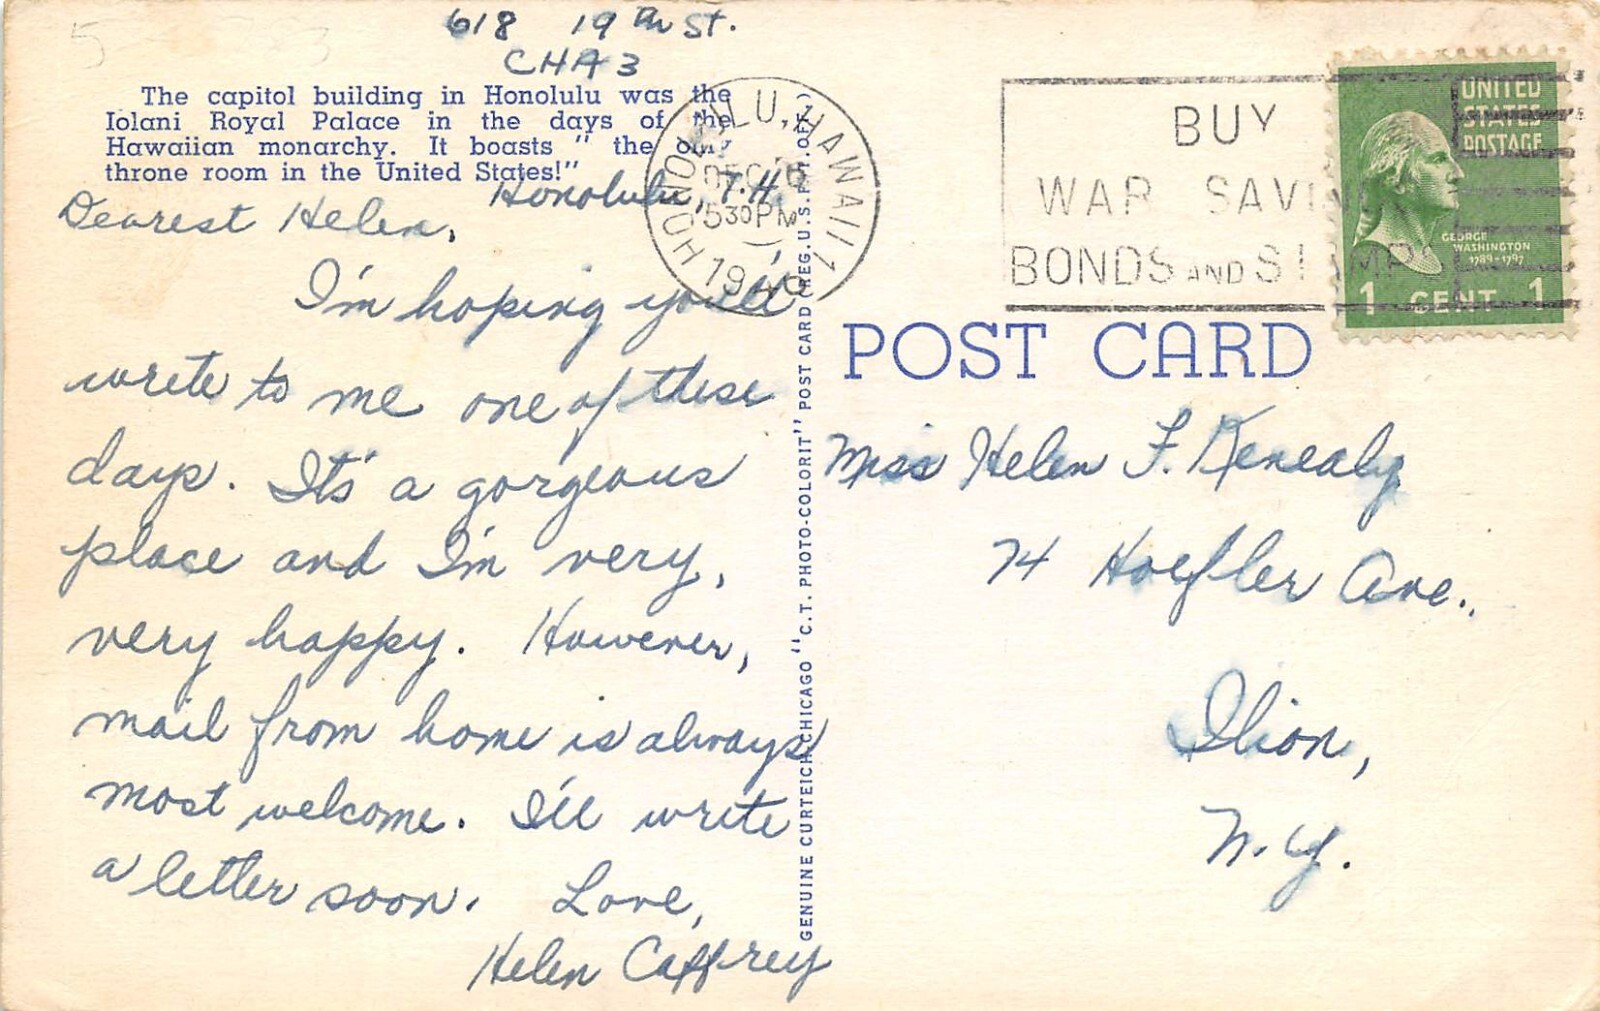 618 19th St.
CHA 3
The capitol building in Honolulu was the
Iolani Royal Palace in the days of the
Hawaiian monarchy. It boasts " the only
throne room in the United States!"
Honolulu, T.H.
Dearest Helen,
I'm hoping you'll
write to me one of these
days. It's a gorgeous
place and I'm very,
very happy. However,
mail from home is always
most welcome. I'll write
a letter soon. Love,
Helen Caffrey
GENUINE CURTEICH-CHICAGO "C.T. PHOTO-COLORIT" POST CARD (REG. U.S. PAT. OFF.)
HONOLULU, HAWAII 1
DEC
530 PM
BUY
WAR SAVINGS
BONDS AND STAMPS
UNITED
STATES
POSTAGE
GEORGE
WASHINGTON
1789-1797
1 CENT 1
POST CARD
Miss Helen F. Kenealy
74 Hoefler Ave.,
Ilion,
N.Y.